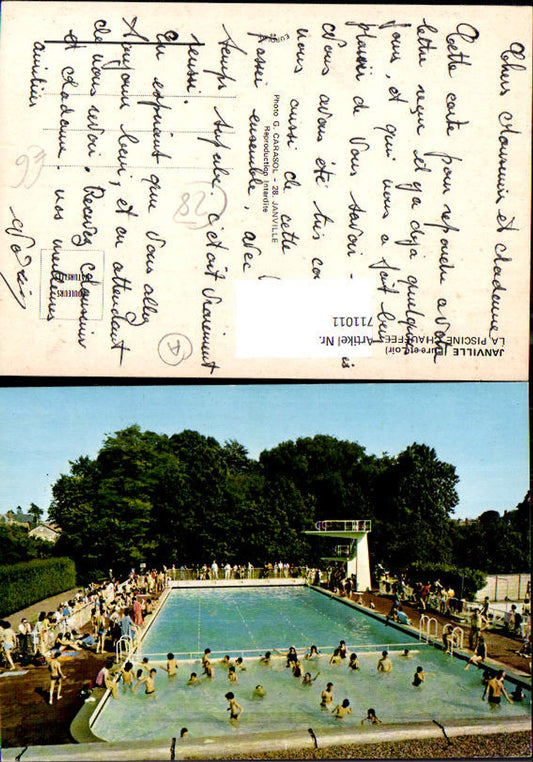 Chers Monsieur et Madame
Cette carte pour repondre a votre
lettre reçue il y a deja quelques
jours, et qui nous a fait bien
plaisir de Vous savoir
Nous avons été très co
nous aussi de cette
passée ensemble, avec
temps superbe c'était vraiment
reussi.
En esperant que Vous alliez
toujours bien, et en attendant
de vous revoir. Recevez Monsieur
et Madame. nos meilleures
amitiés
JANVILLE (Eure-et-Loir)
LA PISCINE CHAUFFEE
Photo G. CARASOL - 28. JANVILLE
Reproduction interdite
COULEURS
NATURELLES
28
Artikel Nr.
711011